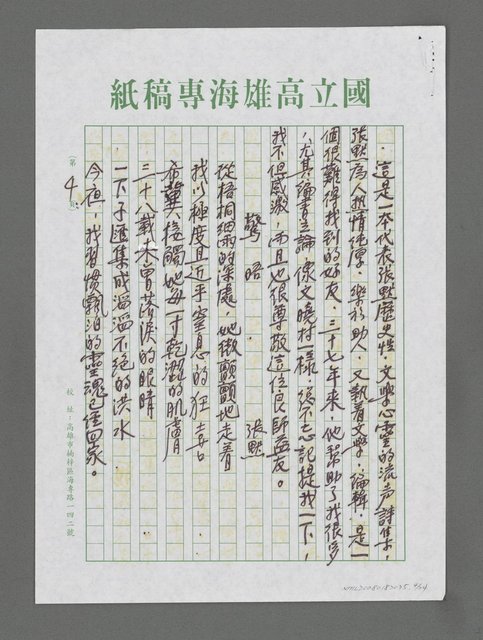 國立高雄海專稿紙
這是一本代表張默歷史性、文學心靈的流声詩集,
張默為人熱情純厚,樂於助人,又執着文學、編輯,是一
個很難得找到的好友,三十七年來,他幫助了我很多
,尤其論書立論,像文曉村一樣,從不忘記提我一下,
我不但感激,而且也很尊敬這位良師益友。
驚晤 張默
從梧桐細雨的深處,她微顫顫地走着
我以極度且近乎窒息的狂喜
希冀接觸她每一寸乾癟的肌膚
三十八載未曾落淚的眼睛
一下子匯集成滔滔不絕的洪水
今夜,我習慣飄泊的靈魂已經回家。
第4頁
校址:高雄市楠梓區海專路一四二號
NMTL20080182025. 4/24